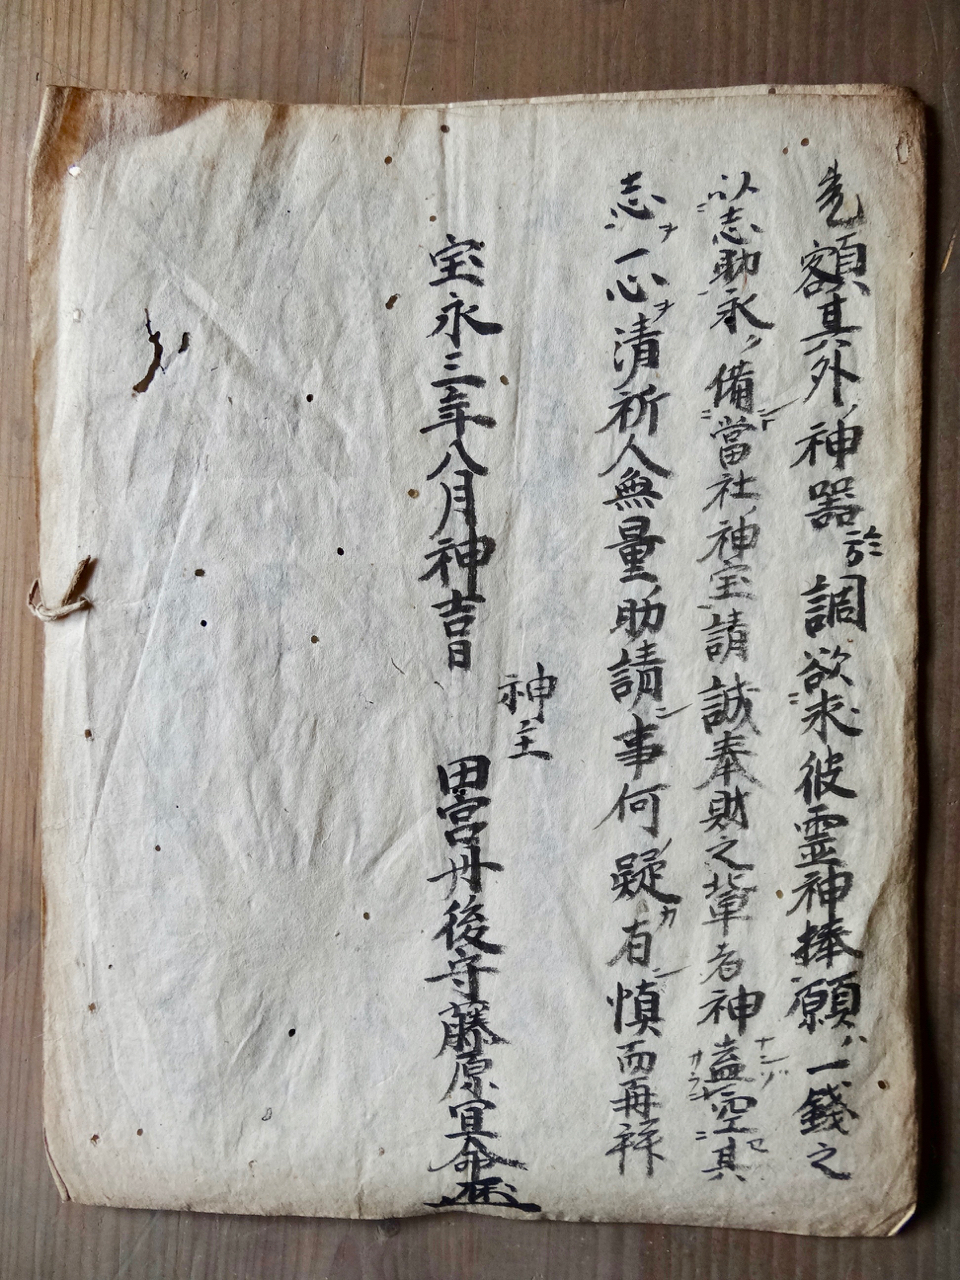 額其外神器於調欲求彼霊神捧願一錢之
以志助永備當社神宝請誠奉財之輩者神盍空其
志一心清祈人無量助請事何疑有慎而再拝
宝永三年八月神吉日
神主
田宮丹後守藤原宣命